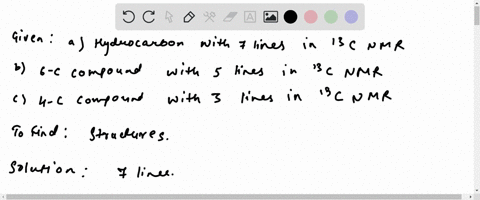 Given: a) Hydrocarbon with 7 lines in ¹³C NMR
b) 6-C compound with 5 lines in ¹³C NMR
c) 4-C compound with 3 lines in ¹³C NMR
To find: Structures.
Solution: 7 lines.